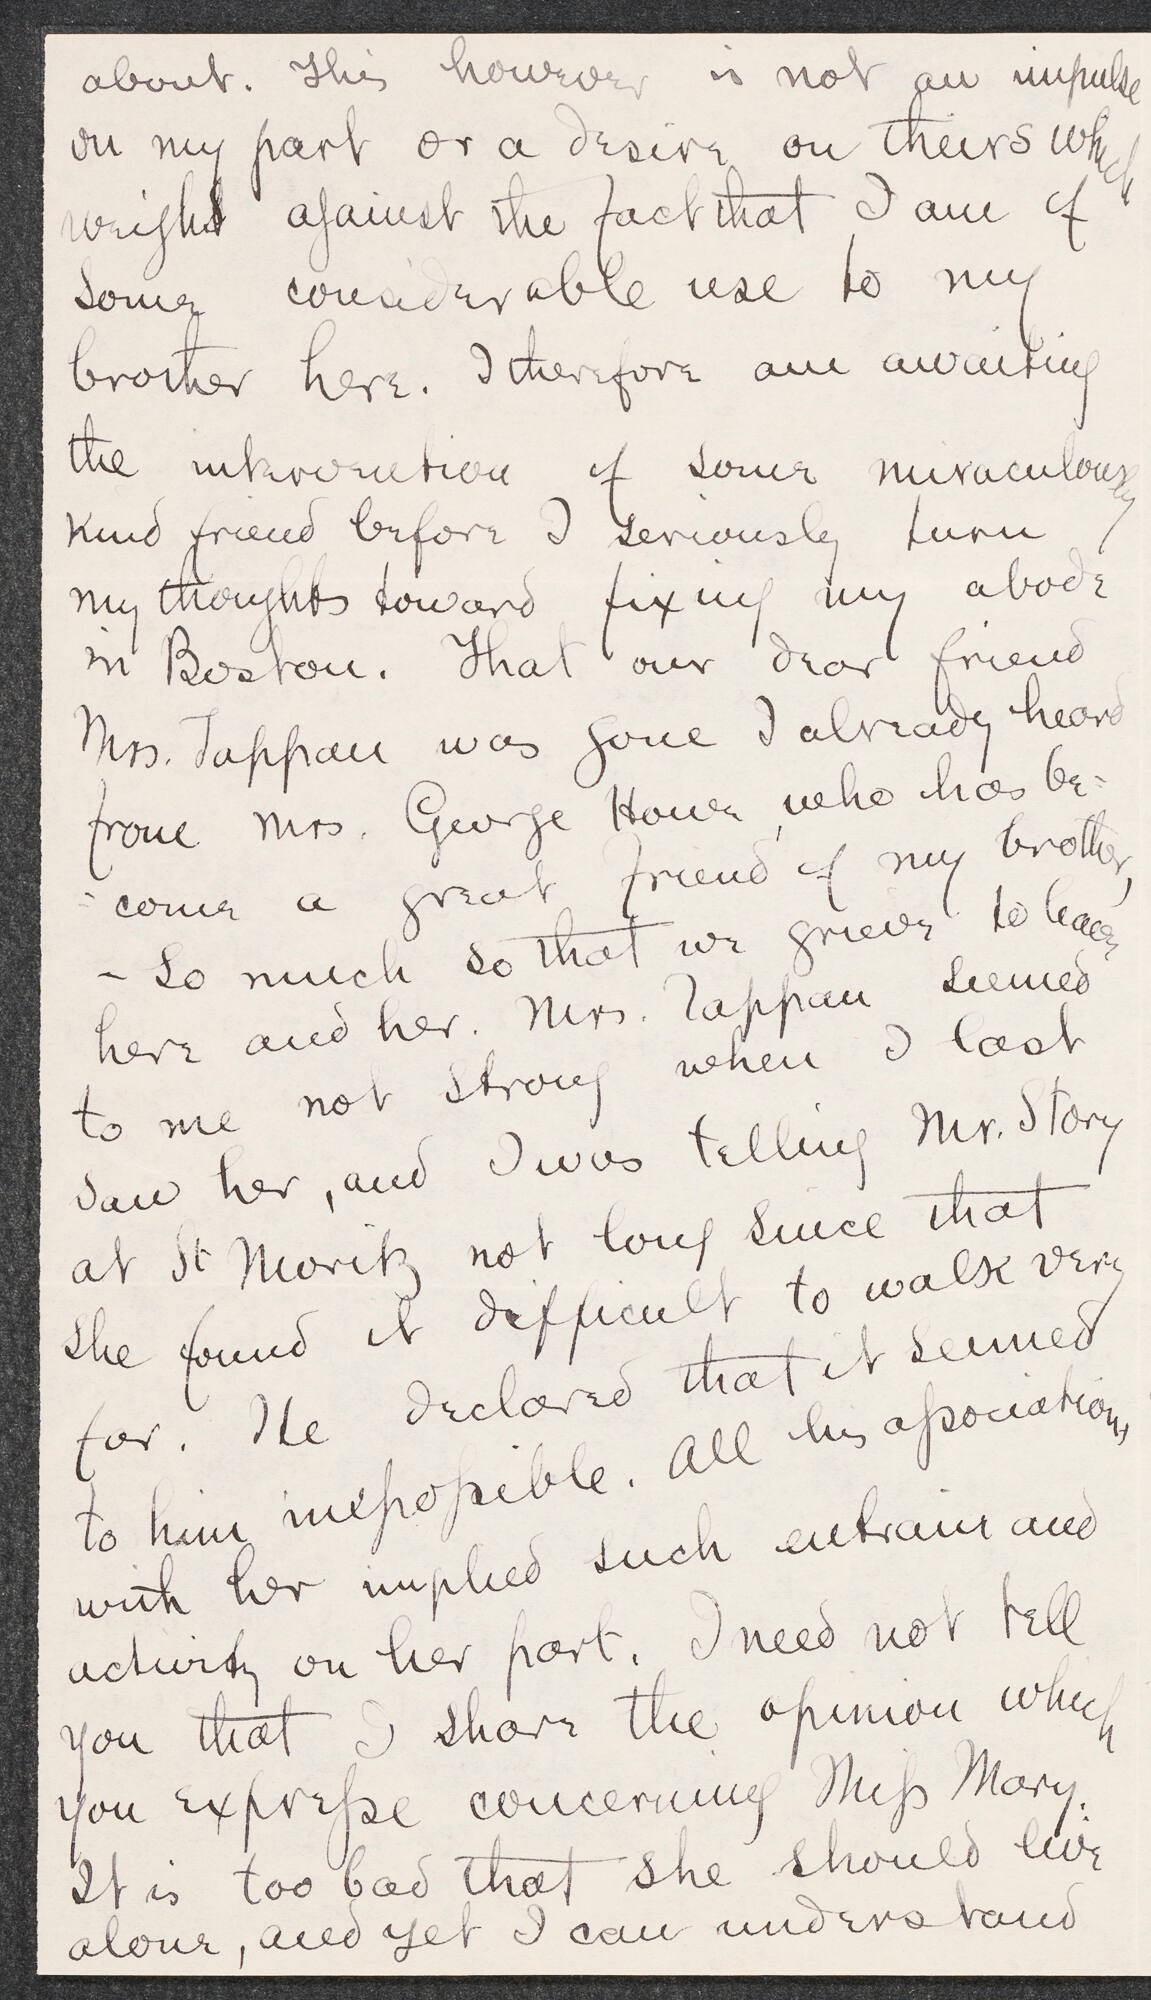 about. This however is not an impulse
on my part or a desire on theirs which
weighs against the fact that I am of
some considerable use to my
brother here. I therefore am awaiting
the intervention of some miraculously
kind friend before I seriously turn
my thoughts toward fixing my abode
in Boston. That our dear friend
Mrs. Tappan was gone I already heard
from Mrs. George Howe, who has be-
-come a great friend of my brother,
- so much so that we grieve to leave
here and her. Mrs. Tappan seemed
to me not strong when I last
saw her, and I was telling Mr. Story
at St Moritz not long since that
she found it difficult to walk very
far. He declared that it seemed
to him impossible. All his associations
with her implied such entrain and
activity on her part. I need not tell
you that I share the opinion which
you expresse concerning Miss Mary.
It is too bad that she should live
alone, and yet I can understand